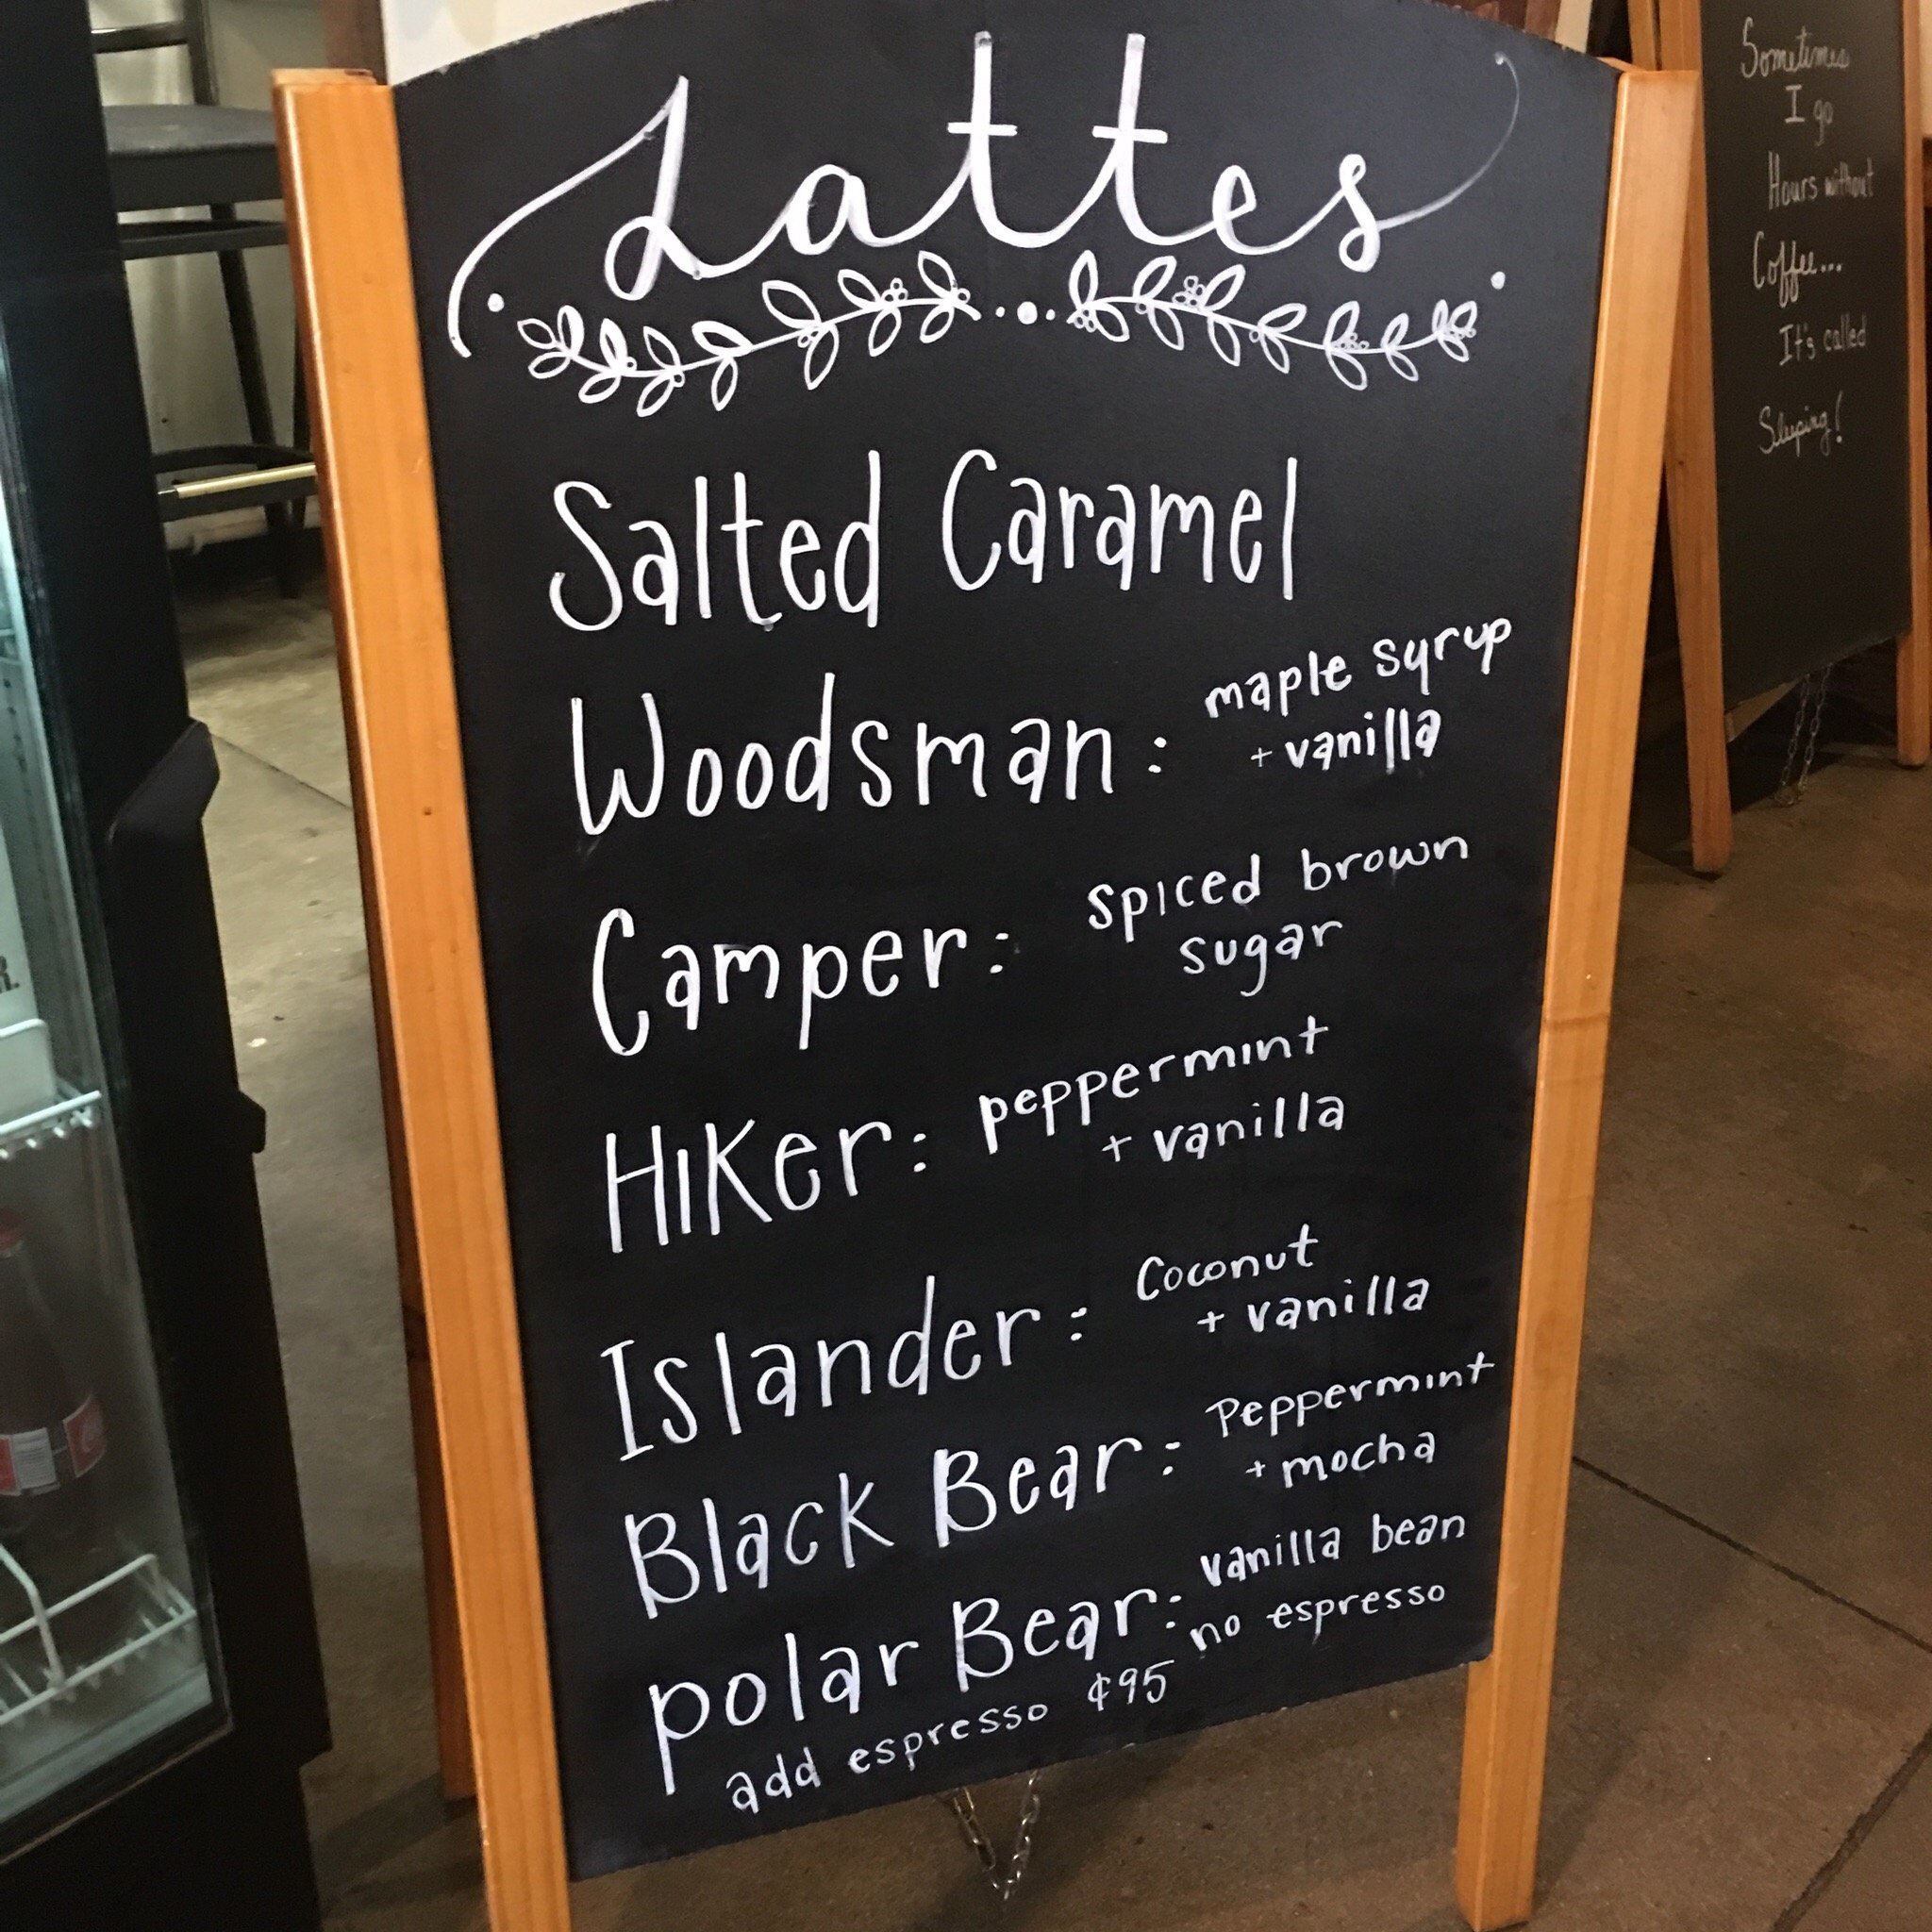 Lattes
Salted Caramel
Woodsman: maple syrup
+ vanilla
Camper: spiced brown
sugar
Hiker: peppermint
+ vanilla
Islander: Coconut
+ vanilla
Black Bear: Peppermint
+ mocha
polar Bear: vanilla bean
no espresso
add espresso ¢95
Sometimes
I go
Hours without
Coffee...
It's called
Sleeping!